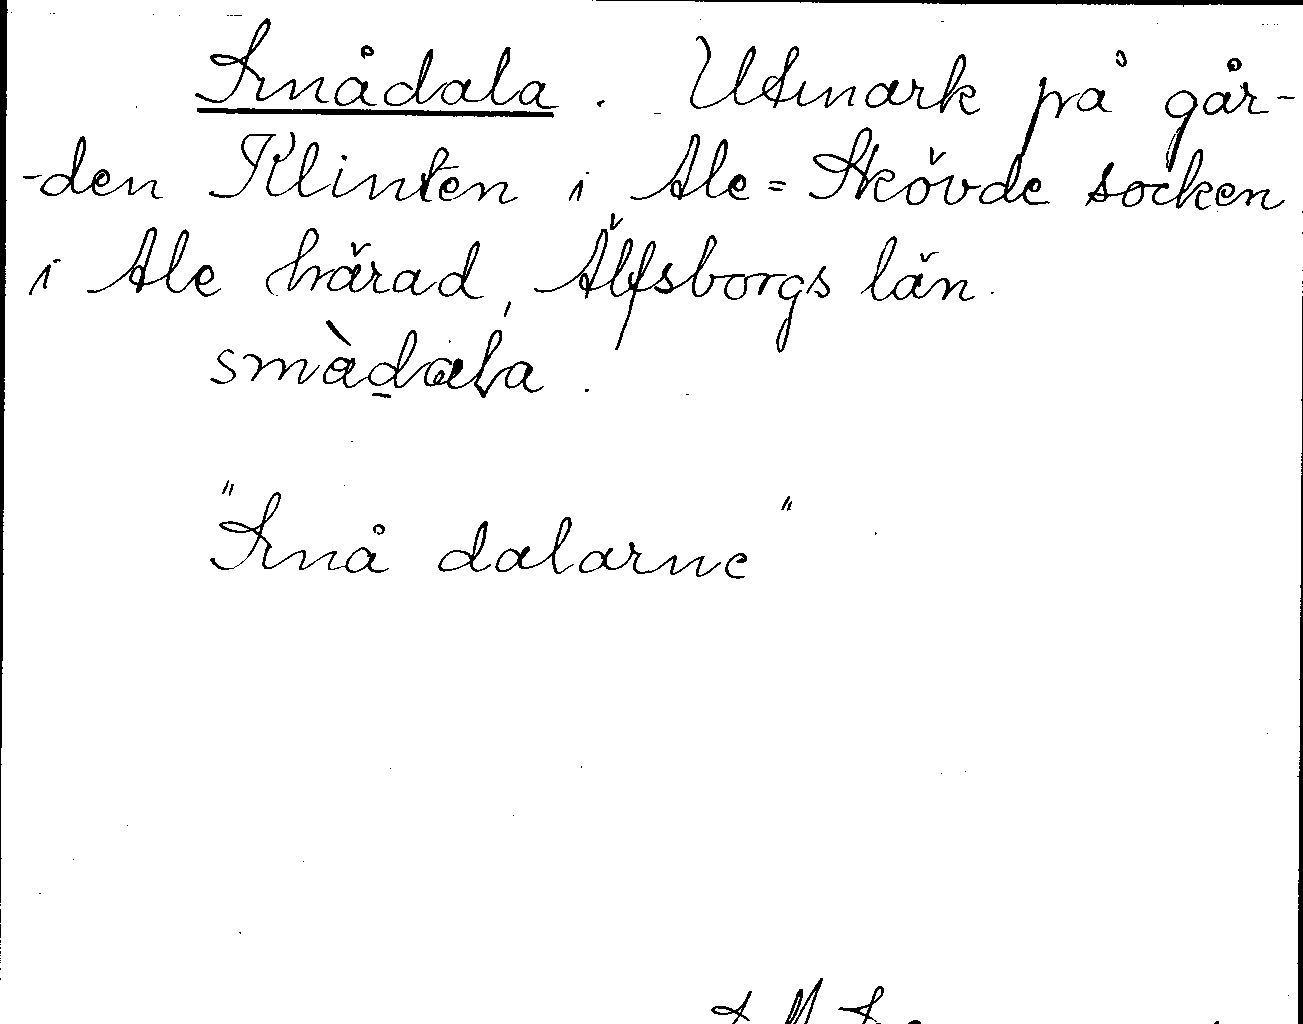 Smådala. Utmark på går-
-den Klinten i Ale=Skövde socken
i Ale härad, Älfsborgs län.
smàdala.
"Små dalarne"